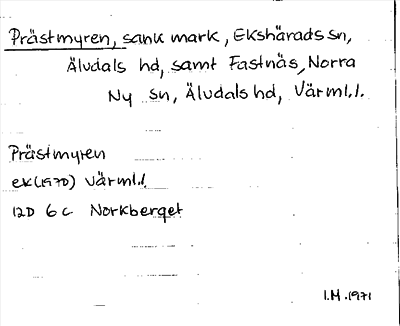 Prästmyren, sank mark, Ekshärads sn,
Älvdals hd, samt Fastnäs, Norra
Ny sn, Älvdals hd, Värml.l.
Prästmyren
ek(1970) Värml.l.
12D 6c Norkberget
I.M. 1971